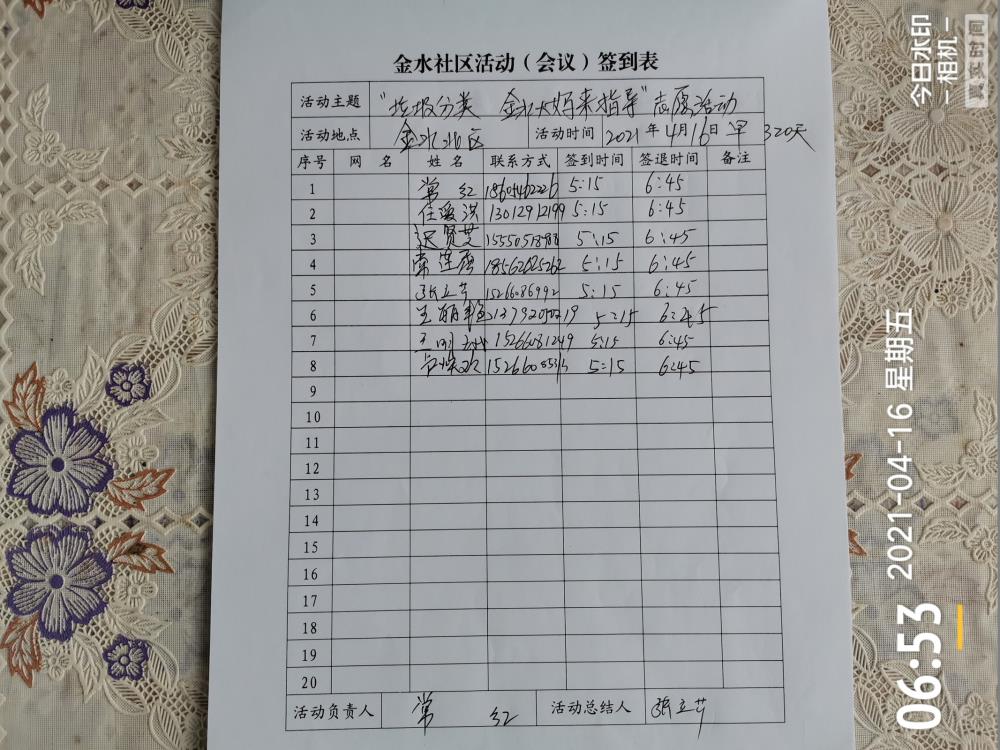 金水社区活动（会议）签到表
活动主题 "垃圾分类 金水大妈来指导"志愿活动
活动地点 金水北区 活动时间 2021年4月16日 早 320天
序号 网名 姓名 联系方式 签到时间 签退时间 备注
1 常红 5:15 6:45
2 任爱洪 13012912199 5:15 6:45
3 迟贤芝 5:15 6:45
4 18562025262 5:15 6:45
5 张立芹 1526086992 5:15 6:45
6 5:15 6:45
7 15266081249 5:15 6:45
8 5:15 6:45
9
10
11
12
13
14
15
16
17
18
19
20
活动负责人 常红 活动总结人 张立芹
今日水印
相机
真实时间
06:53 2021-04-16 星期五